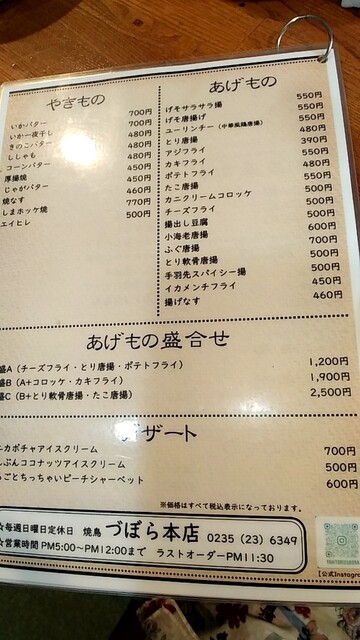 やきもの
いかバター 700円
いか一夜干し 700円
きのこバター 480円
ししゃも 480円
コーンバター 450円
厚揚焼 450円
じゃがバター 450円
焼なす 460円
しまホッケ焼 770円
エイヒレ 500円
あげもの
げそサラサラ揚 550円
げそ唐揚げ 550円
ユーリンチー(中華風鶏唐揚) 550円
とり唐揚 480円
アジフライ 390円
カキフライ 550円
ポテトフライ 480円
たこ唐揚 550円
カニクリームコロッケ 450円
チーズフライ 500円
揚出し豆腐 500円
小海老唐揚 600円
ふぐ唐揚 700円
とり軟骨唐揚 500円
手羽先スパイシー揚 500円
イカメンチフライ 450円
揚げなす 460円
あげもの盛合せ
盛A(チーズフライ・とり唐揚・ポテトフライ) 1,200円
盛B(A+コロッケ・カキフライ) 1,900円
盛C(B+とり軟骨唐揚・たこ唐揚) 2,500円
デザート
ニカボチャアイスクリーム 700円
ぷんココナッツアイスクリーム 500円
るごとちっちゃいピーチシャーベット 600円
※価格はすべて税込表示になっております。
☆毎週日曜日定休日 焼鳥 づぼら本店 0235(23)6349
☆営業時間PM5:00~PM12:00まで ラストオーダーPM11:30
【公式Instagra